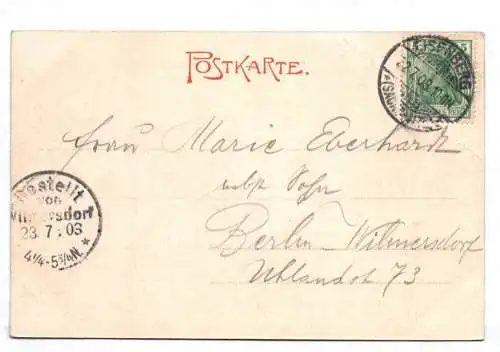 POSTKARTE.
EISENBERG
(S.-A.)
7.03. 11-12
Frau Marie Eberhardt
nebst Sohn
Berlin-Wilmersdorf
Uhlandst 73
Bestellt
von
Wilmersdorf
23. 7. 03
4¼-5¾N.